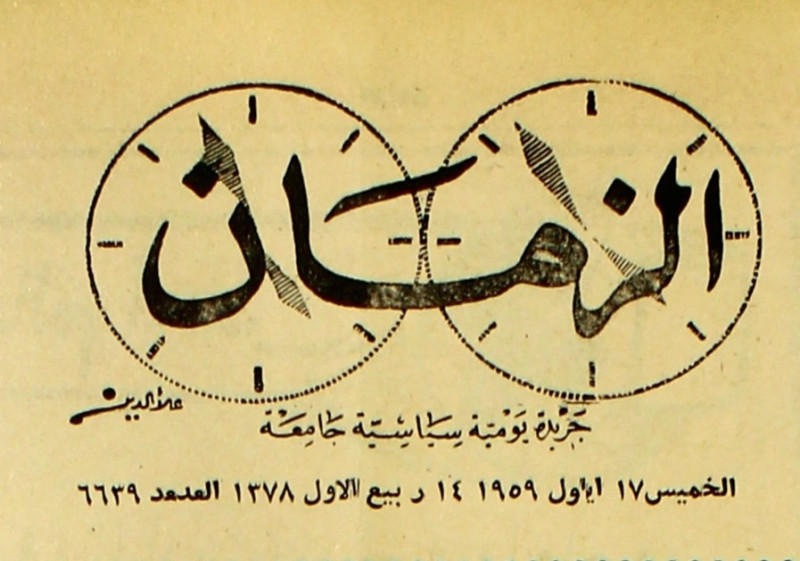 الزمان
علاء الدين
جَرِيْدة يَوْميّة سِيَاسِيّة جَامِعَة
الخميس ١٧ ايلول ١٩٥٩ ١٤ ربيع الاول ١٣٧٨ العدد ٦٦٣٩